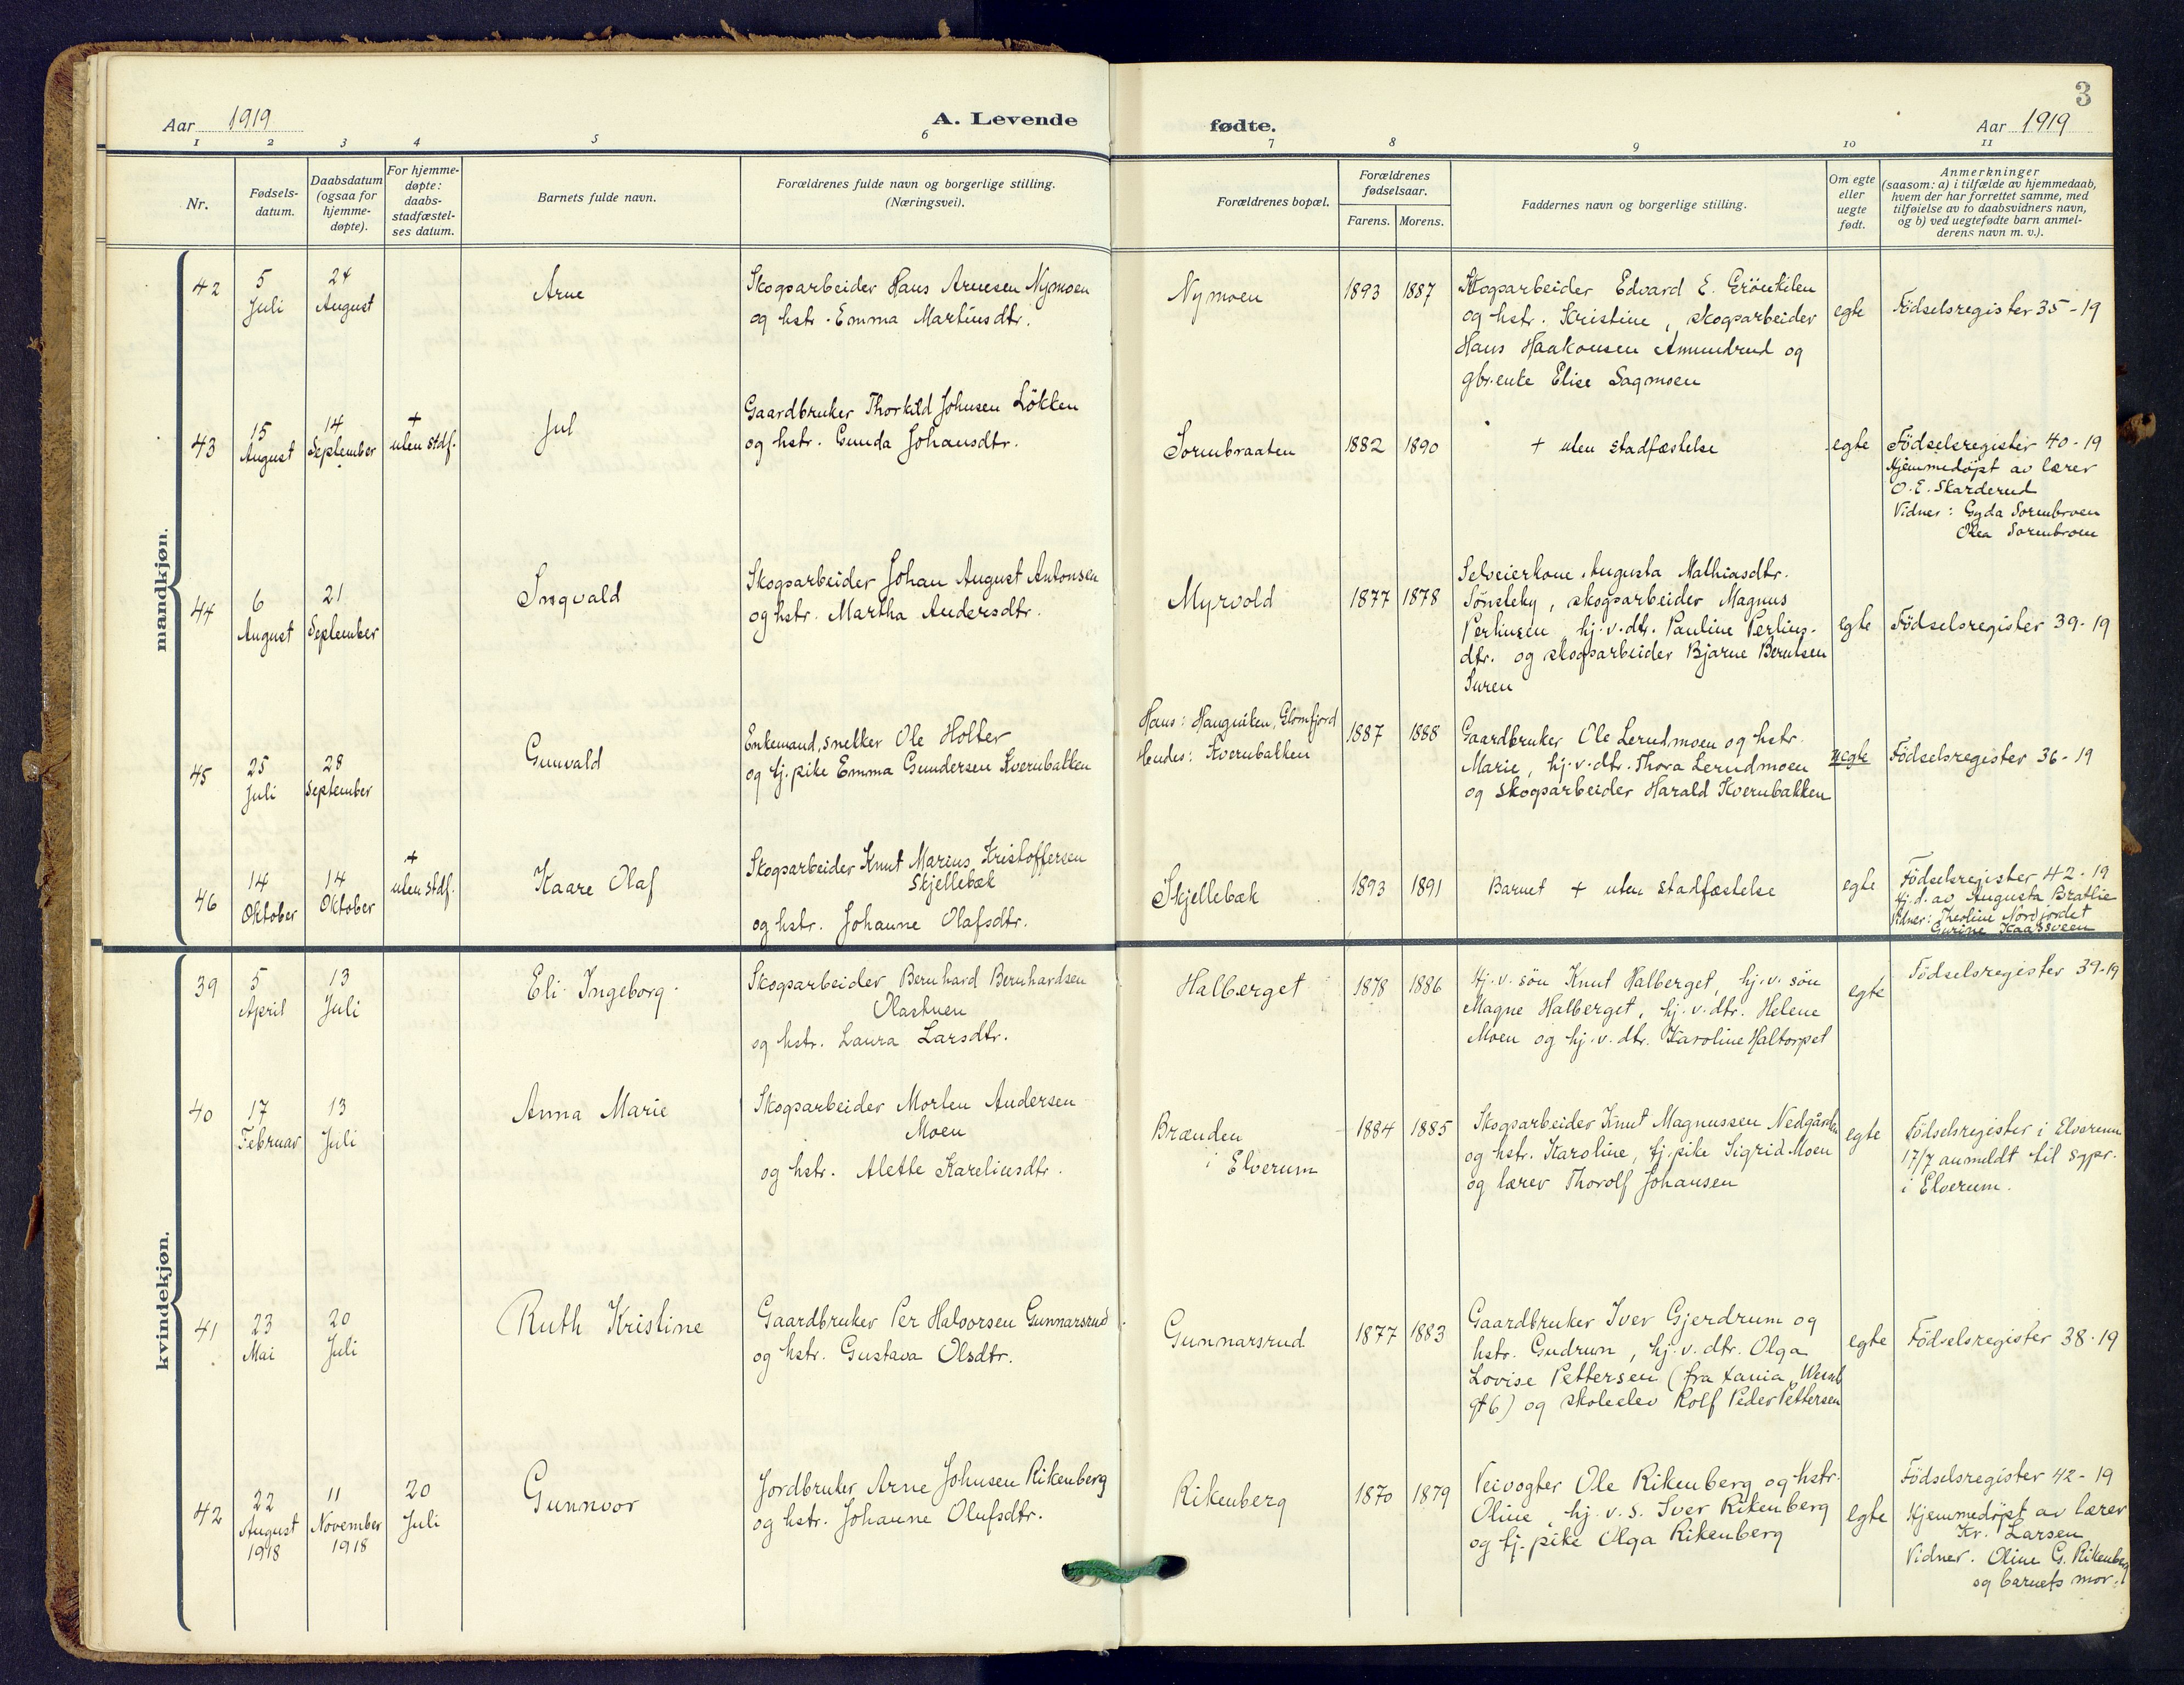 3
Aar 1919
A. Levende
fødte.
Aar 1919
1 2 3 4 5 6 7 8 9 10 11
Nr.
Fødsels-
datum.
Daabsdatum
(ogsaa for
hjemme-
døpte).
For hjemme-
døpte:
daabs-
stadfæstel-
ses datum.
Barnets fulde navn.
Forældrenes fulde navn og borgerlige stilling.
(Næringsvei).
Forældrenes bopæl.
Forældrenes
fødselsaar.
Farens. Morens.
Faddernes navn og borgerlige stilling.
Om egte
eller
uegte
født.
Anmerkninger
(saasom: a) i tilfælde av hjemmedaab,
hvem der har forrettet samme, med
tilføielse av to daabsvidners navn,
og b) ved uegtefødte barn anmel-
derens navn m. v.).
mandkjøn.
42
5
Juli
24
August
Arne
Skogsarbeider Hans Arnesen Nymoen
og hstr. Emma Martinsdtr.
Nymoen
1893
1887
Skogsarbeider Edvard E. Grönkilen
og hstr. Kristine, skogsarbeider
Hans Haakonsen Amundrud og
gbr.enke Elise Sagmoen
egte
Födselsregister 35-19
43
15
August
14
September
+
uten stdf.
Jul
Gaardbruker Thorkild Johnsen Lökken
og hstr. Gunda Johansdtr.
Sormbraaten
1882
1890
+ uten stadfæstelse
egte
Födselsregister 40-19
Hjemmedöpt av lærer
O. E. Skarderud
Vidner: Gyda Sormbroen
Olea Sormbroen
44
6
August
21
September
Ingvald
Skogsarbeider Johan August Antonsen
og hstr. Martha Andersdtr.
Myrvold
1877
1878
Selveierkone Augusta Mathiasdtr.
Sönsleby, skogsarbeider Magnus
Perlinsen, hj.v.dtr. Pauline Perlins-
dtr. og skogsarbeider Bjarne Berntsen
Suren
egte
Födselsregister 39-19
45
25
Juli
28
September
Gunvald
Enkemand, snekker Ole Holter
og tj.pike Emma Gundersen Kvernbakken
Hans: Haugviken, Glomfjord
Hendes: Kvernbakken
1887
1888
Gaardbruker Ole Lerudmoen og hstr.
Marie, hj.v.dtr. Thora Lerudmoen
og skogsarbeider Harald Kvernbakken
uegte
Födselsregister 36-19
46
14
Oktober
14
Oktober
+
uten stdf.
Kaare Olaf
Skogsarbeider Knut Marius Kristoffersen
Skjellebæk
og hstr. Johanne Olafsdtr.
Skjellebæk
1893
1891
Barnet + uten stadfæstelse
egte
Födselsregister 42-19
Hj.d. av Augusta Bratlie
Vidner: Theoline Nordjordet
Gurine Kaassveen
kvindekjøn.
39
5
April
13
Juli
Eli Ingeborg
Skogsarbeider Bernhard Bernhardsen
Olastuen
og hstr. Laura Larsdtr.
Halberget
1878
1886
Hj.v. sön Knut Halberget, hj.v. sön
Magne Halberget, hj.v.dtr. Helene
Moen og hj.v.dtr. Karoline Haltorpet
egte
Födselsregister 39-19
40
17
Februar
13
Juli
Anna Marie
Skogsarbeider Morten Andersen
Moen
og hstr. Alette Kareliusdtr.
Brænden
i Elverum
1884
1885
Skogsarbeider Knut Magnussen Nedgården
og hstr. Karoline, tj.pike Sigrid Moen
og lærer Thorolf Johansen
egte
Födselsregister i Elverum
17/7 anmeldt til sgpr.
i Elverum.
41
23
Mai
20
Juli
Ruth Kristine
Gaardbruker Per Halvorsen Gunnarsrud
og hstr. Gustava Olsdtr.
Gunnarsrud
1877
1883
Gaardbruker Iver Gjerdrum og
hstr. Gudrun, hj.v.dtr. Olga
Lovise Pettersen (fra
gt 6) og skoleelev Rolf Peder Pettersen
egte
Födselsregister 38-19
42
22
August
1918
11
November
1918
20
Juli
Gunnvor
Jordbruker Arne Johnsen Rikenberg
og hstr. Johanne Olufsdtr.
Rikenberg
1870
1879
Veivogter Ole Rikenberg og hstr.
Oline, hj.v.s. Iver Rikenberg
og tj.pike Olga Rikenberg
egte
Födselsregister 42-19
Hjemmedöpt av lærer
Kr. Larsen
Vidner. Oline G. Rikenberg
og barnets mor.